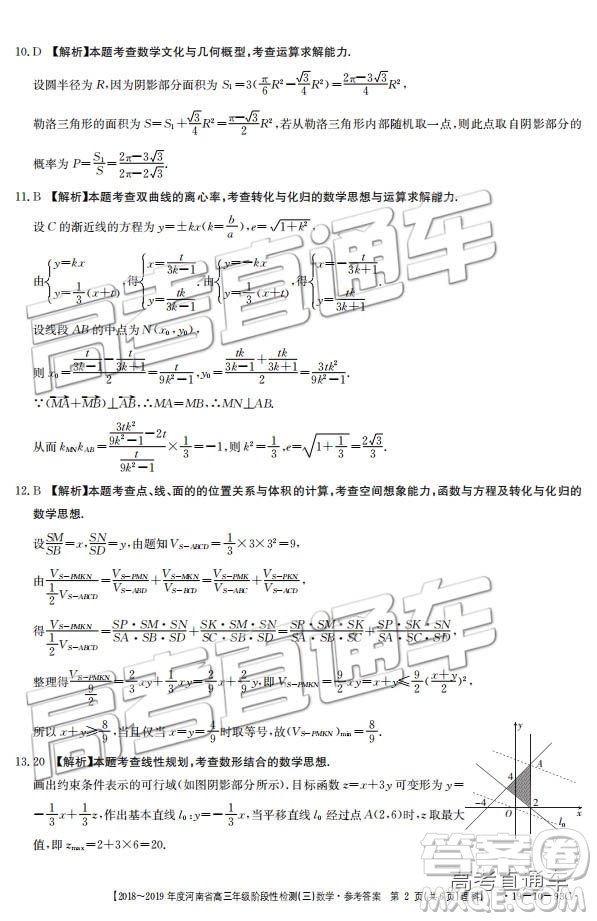 10. D 【解析】本题考查数学文化与几何概型,考查运算求解能力.
设圆半径为 R,因为阴影部分面积为 S₁=3(π/6 R²-√3/4 R²)=(2π-3√3)/4 R²,
勒洛三角形的面积为 S=S₁+√3/4 R²=(π-√3)/2 R²,若从勒洛三角形内部随机取一点,则此点取自阴影部分的
概率为 P=S₁/S=(2π-3√3)/(2π-2√3).
11. B 【解析】本题考查双曲线的离心率,考查转化与化归的数学思想与运算求解能力.
设 C 的渐近线的方程为 y=±kx(k=b/a),e=√(1+k²).
由{y=kx, y=1/3(x+t)},得{x=t/(3k-1), y=tk/(3k-1)}.由{y=-kx, y=1/3(x+t)},得{x=-t/(3k+1), y=tk/(3k+1)}.
设线段 AB 的中点为 N(x₀,y₀),
则 x₀=(t/(3k-1)-t/(3k+1))/2=t/(9k²-1),y₀=(tk/(3k-1)+tk/(3k+1))/2=3tk²/(9k²-1).
∵(MA+MB)⊥AB,∴MA=MB,∴MN⊥AB.
从而 kMNkAB=(3tk²/(9k²-1)-2t)/(t/(9k²-1))×1/3=-1,则 k²=1/3,e=√(1+1/3)=2√3/3.
12. B 【解析】本题考查点、线、面的的位置关系与体积的计算,考查空间想象能力,函数与方程及转化与化归的
数学思想.
设SM/SB=x,SN/SD=y,由题知 V_{S-ABCD}=1/3×3×3²=9,
由V_{S-PMKN}/(1/2 V_{S-ABCD})=V_{S-PMN}/V_{S-ABD}+V_{S-MKN}/V_{S-BCD}=V_{S-PMK}/V_{S-ABC}+V_{S-PKN}/V_{S-ACD},
得V_{S-PMKN}/(1/2 V_{S-ABCD})=SP·SM·SN/SA·SB·SD+SK·SM·SN/SC·SB·SD=SP·SM·SK/SA·SB·SC+SP·SK·SN/SA·SC·SD,
整理得V_{S-PMKN}/(9/2)=2/3 xy+1/3 xy=2/9 x+2/9 y,即 V_{S-PMKN}=9/2 xy=x+y≤9/2((x+y)/2)²,
所以 x+y≥8/9,当且仅当 x=y=4/9时取等号,故(V_{S-PMKN})min=8/9.
13. 20 【解析】本题考查线性规划,考查数形结合的数学思想.
画出约束条件表示的可行域(如图阴影部分所示).目标函数 z=x+3y 可变形为 y=
-1/3 x+1/3 z,作出基本直线 l₀:y=-1/3 x,当平移直线 l₀ 经过点 A(2,6)时,z 取最大
值,即 zmax=2+3×6=20.
y
A
4
-4
2
x
l₀
【2018~2019 年度河南省高三年级阶段性检测(三)数学·参考答案 第 2 页(共6页)理科】
高考直通车
高考直通车
高考直通车
答案圈